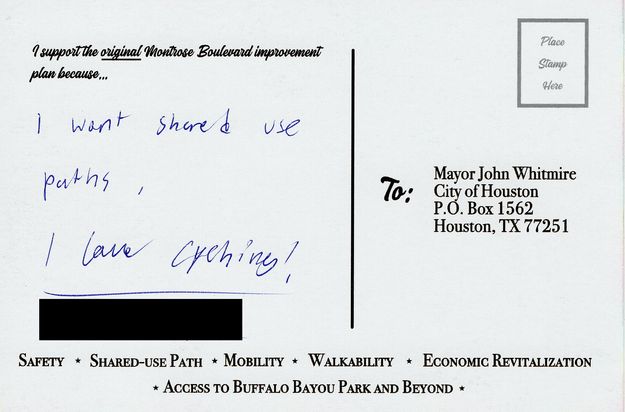 I support the original Montrose Boulevard improvement
plan because...
I want shared use
paths,
I love cycling!
Place
Stamp
Here
To:
Mayor John Whitmire
City of Houston
P.O. Box 1562
Houston, TX 77251
SAFETY ⋆ SHARED-USE PATH ⋆ MOBILITY ⋆ WALKABILITY ⋆ ECONOMIC REVITALIZATION
⋆ ACCESS TO BUFFALO BAYOU PARK AND BEYOND ⋆